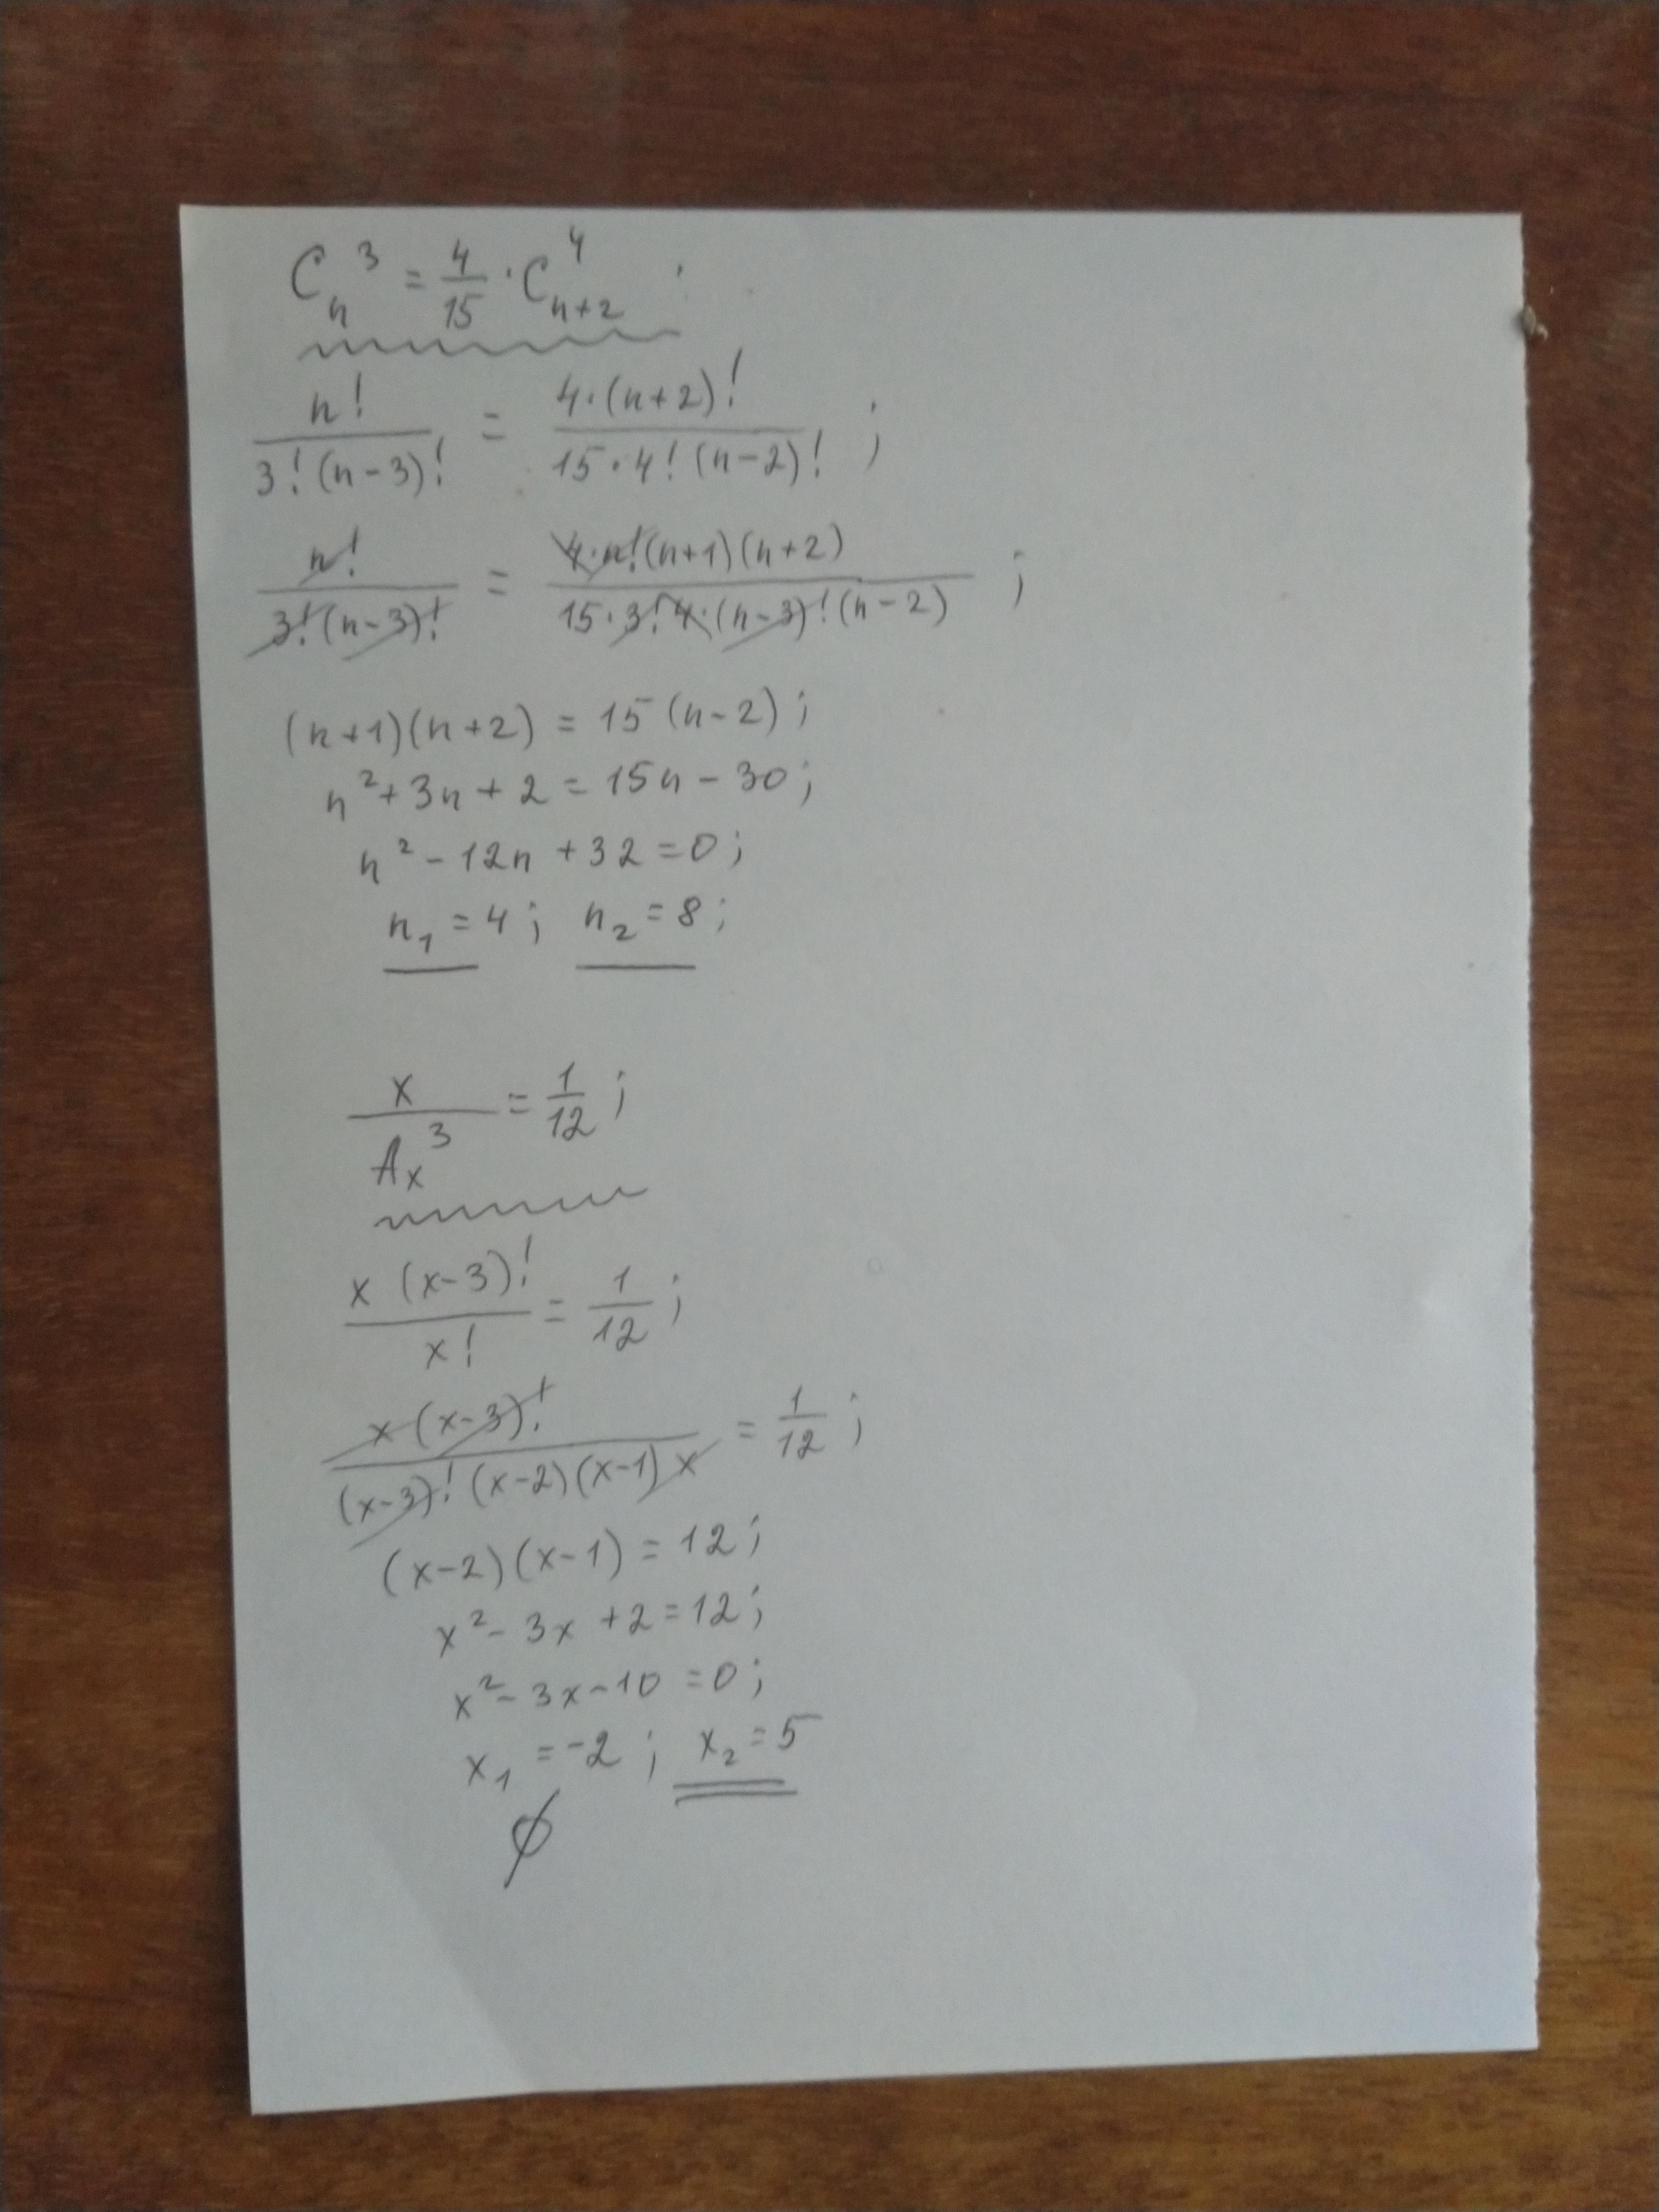 C_n^3 = 4/15 · C_{n+2}^4 ;
n! / 3!(n-3)! = 4·(n+2)! / 15·4!(n-2)! ;
n! / 3!(n-3)! = 4·n!(n+1)(n+2) / 15·3!4·(n-3)!(n-2) ;
(n+1)(n+2) = 15(n-2);
n²+3n+2 = 15n-30;
n²-12n+32=0;
n₁=4; n₂=8;
x / A_x^3 = 1/12 ;
x (x-3)! / x! = 1/12 ;
x(x-3)! / (x-3)!(x-2)(x-1)x = 1/12 ;
(x-2)(x-1)=12;
x²-3x+2=12;
x²-3x-10=0;
x₁=-2; x₂=5
∅